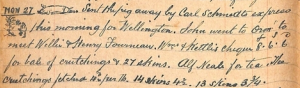 Nov 27 Sent the pig away by Carl Schmidts express
this morning for Wellington. John went to to
meet Willie & Henry Fourneau. Wm & Kettles cheque 8.6.6
for bale of crutchings & 27 skins. Alf Neale for tea. The
crutchings fetched per lb. 14 skins 4½. 13 skins 3¾.